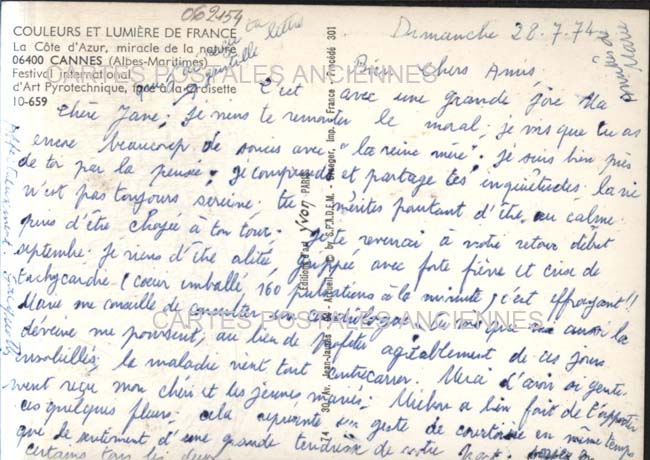 062154
COULEURS ET LUMIÈRE DE FRANCE
La Côte d'Azur, miracle de la nature
06400 CANNES (Alpes-Maritimes)
Festival international
d'Art Pyrotechnique, face à la Croisette
10-659
lettre
Dimanche 28.7.74
Bien Chers Amis,
C'est avec une grande joie Ma
chère Jane, je viens te remonter le moral, je vois que tu as
encore beaucoup de soucis avec "la reine mère". je suis bien près
de toi par la pensée, je comprends et partage tes inquiétudes. la vie
n'est pas toujours sereine. tu mérites pourtant d'être au calme
puis d'être choyée à ton tour. Je te reverrai à votre retour début
septembre. Je viens d'être alitée, grippée avec forte fièvre et crise de
tachycardie (coeur emballé, 160 pulsations à la minute, c'est effrayant!!
Marie me conseille de consulter un cardiologue
déveine me poursuit, au lieu de profiter agréablement de ces jours
ensoleillés, la maladie vient tout contrecarrer. Merci d'avoir si gentiment
reçu mon chéri et les jeunes mariés. a bien fait de t'apporter
ces quelques fleurs, cela représente un geste de courtoisie en même temps
que le sentiment d'une grande tendresse de notre part.
certains tous les deux
Affectueusement. Jacquotte
Marie
Editions d'art yvon PARIS
30, Av. Jean-Jaurès 94 - Arcueil © by S.P.A.D.E.M. - Draeger, Imp. - France - Procédé 301
CARTES POSTALES ANCIENNES
CARTES POSTALES ANCIENNES